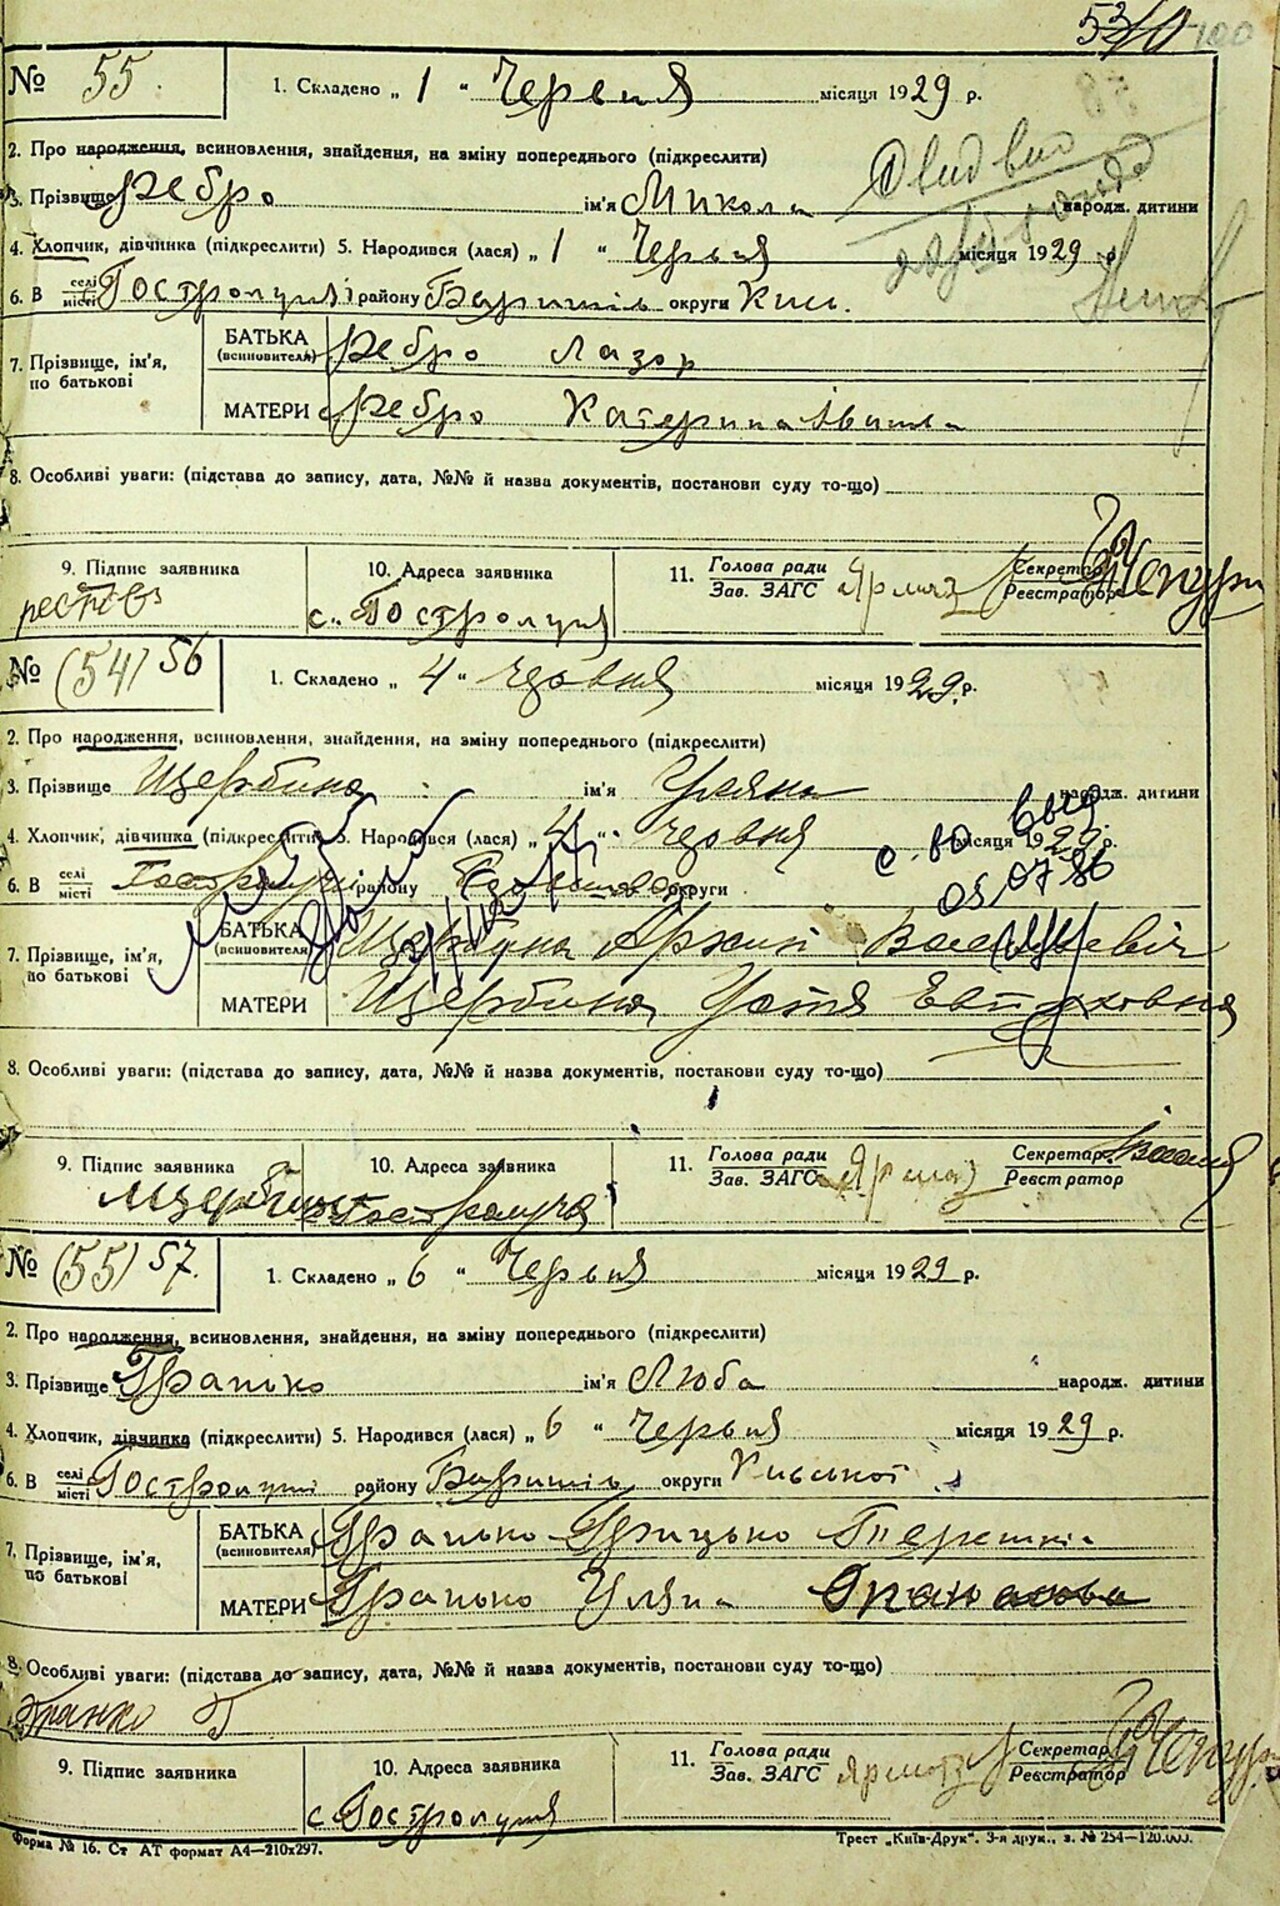 № 55. 1. Складено „ 1 “ Червня місяця 1929 р.
2. Про народження, всиновлення, знайдення, на зміну попереднього (підкреслити)
3. Прізвище Ребро ім'я Микола народж. дитини
4. Хлопчик, дівчинка (підкреслити) 5. Народився (лася) „ 1 “ Червня місяця 1929 р.
6. В селі/місті Гостролуччі району Баришів округи Киів.
7. Прізвище, ім'я, по батькові
БАТЬКА (всиновителя) Ребро Лазор
МАТЕРИ Ребро Катерина
8. Особливі уваги: (підстава до запису, дата, №№ й назва документів, постанови суду то-що)
9. Підпис заявника 10. Адреса заявника 11. Голова ради Секретар
Зав. ЗАГС Реєстратор
с. Гостролуччя
№ (54) 56 1. Складено „ 4 “ червня місяця 1929 р.
2. Про народження, всиновлення, знайдення, на зміну попереднього (підкреслити)
3. Прізвище Щербина ім'я Уляна народж. дитини
4. Хлопчик, дівчинка (підкреслити) 5. Народився (лася) „ 4 “ червня місяця 1929 р.
6. В селі/місті Гостролуччі району округи
05.07.86
7. Прізвище, ім'я, по батькові
БАТЬКА (всиновителя) Щербина Васильевіч
МАТЕРИ Щербина Устя Евтуховна
8. Особливі уваги: (підстава до запису, дата, №№ й назва документів, постанови суду то-що)
9. Підпис заявника 10. Адреса заявника 11. Голова ради Секретар
Зав. ЗАГС Реєстратор
Щербина Гостролуччя
№ (55) 57. 1. Складено „ 6 “ Червня місяця 1929 р.
2. Про народження, всиновлення, знайдення, на зміну попереднього (підкреслити)
3. Прізвище Гранько ім'я Люба народж. дитини
4. Хлопчик, дівчинка (підкреслити) 5. Народився (лася) „ 6 “ Червня місяця 1929 р.
6. В селі/місті Гостролуччі району Баришів округи Киівської
7. Прізвище, ім'я, по батькові
БАТЬКА (всиновителя) Гранько Грицько
МАТЕРИ Гранько Уляна
8. Особливі уваги: (підстава до запису, дата, №№ й назва документів, постанови суду то-що)
Гранко Г
9. Підпис заявника 10. Адреса заявника 11. Голова ради Секретар
Зав. ЗАГС Реєстратор
с Гостролуччя
Форма № 16. Ст АТ формат А4—210х297. Трест „Київ-Друк“. 3-я друк., з. № 254—120.000.